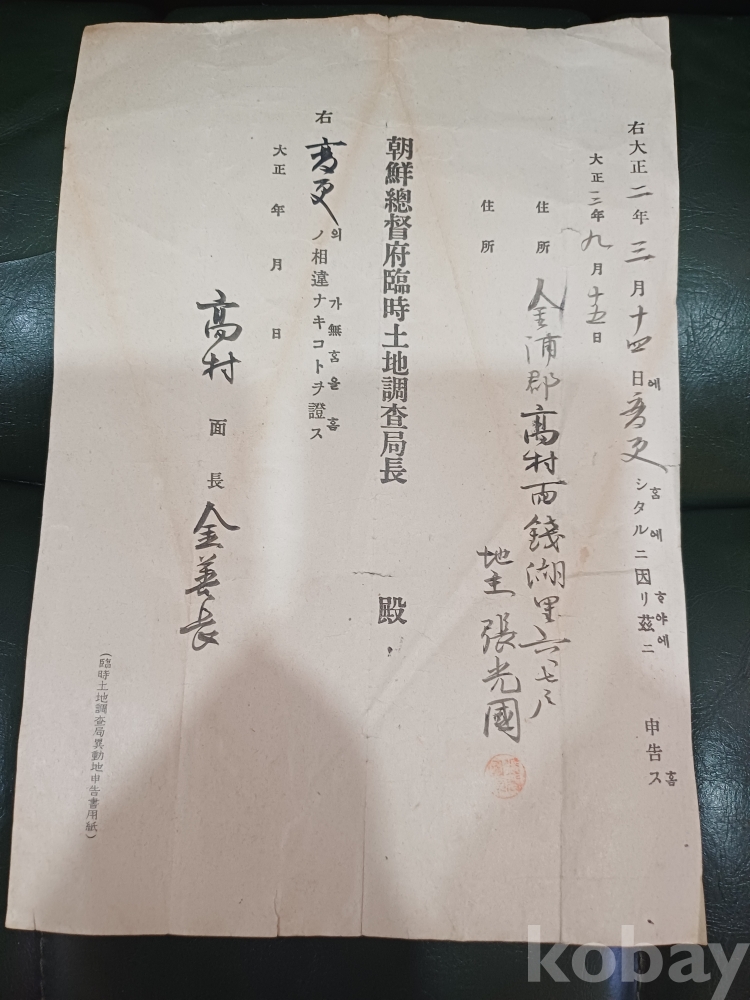 右大正二年三月十四日에變更홈에호야에
シタルニ因リ茲ニ
申告ス홈
大正二年九月十五日
住所 金浦郡高村面錢湖里六七戶
住所
地主 張光國
朝鮮總督府臨時土地調查局長 殿
右變更의가無홈을홈
ノ相違ナキコトヲ證ス
大正 年 月 日
高村面長 金善長
(臨時土地調查局異動地申告書用紙)
kobay